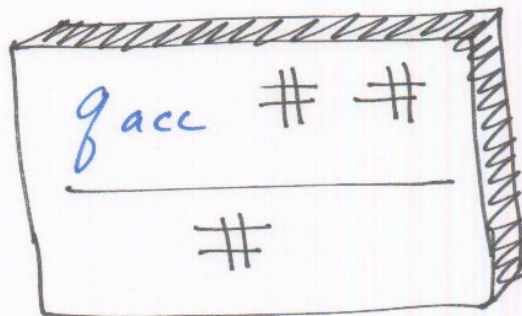 qacc # #
#